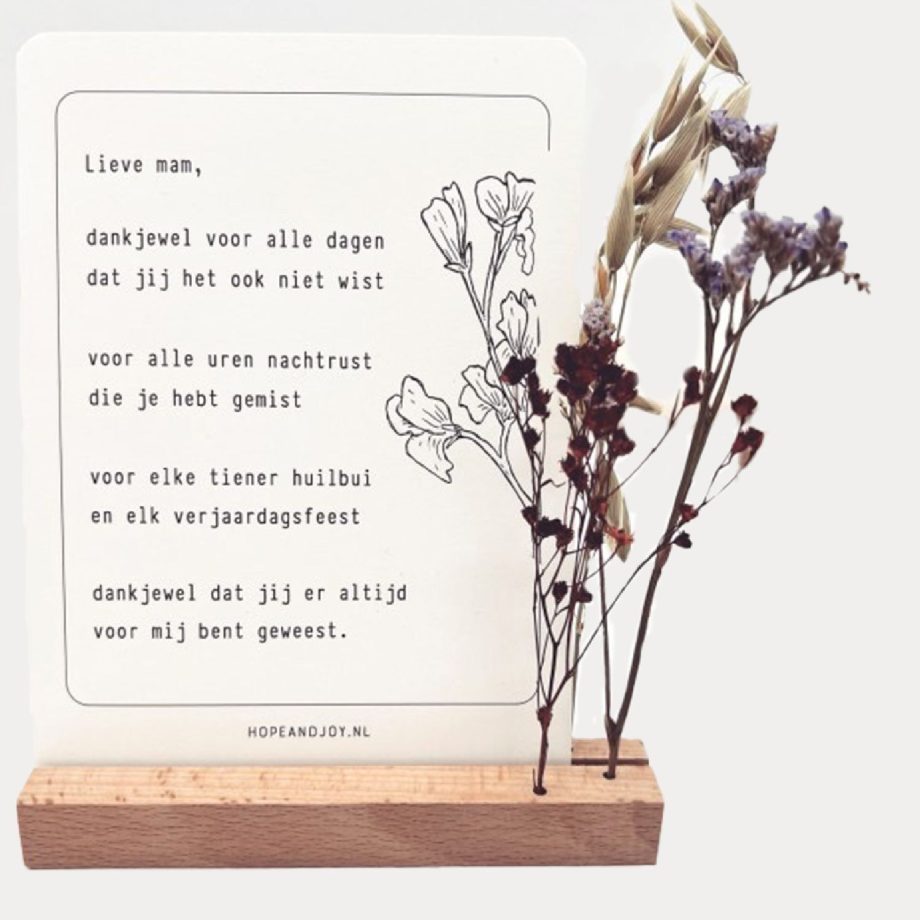 Lieve mam,
dankjewel voor alle dagen
dat jij het ook niet wist
voor alle uren nachtrust
die je hebt gemist
voor elke tiener huilbui
en elk verjaardagsfeest
dankjewel dat jij er altijd
voor mij bent geweest.
HOPEANDJOY.NL